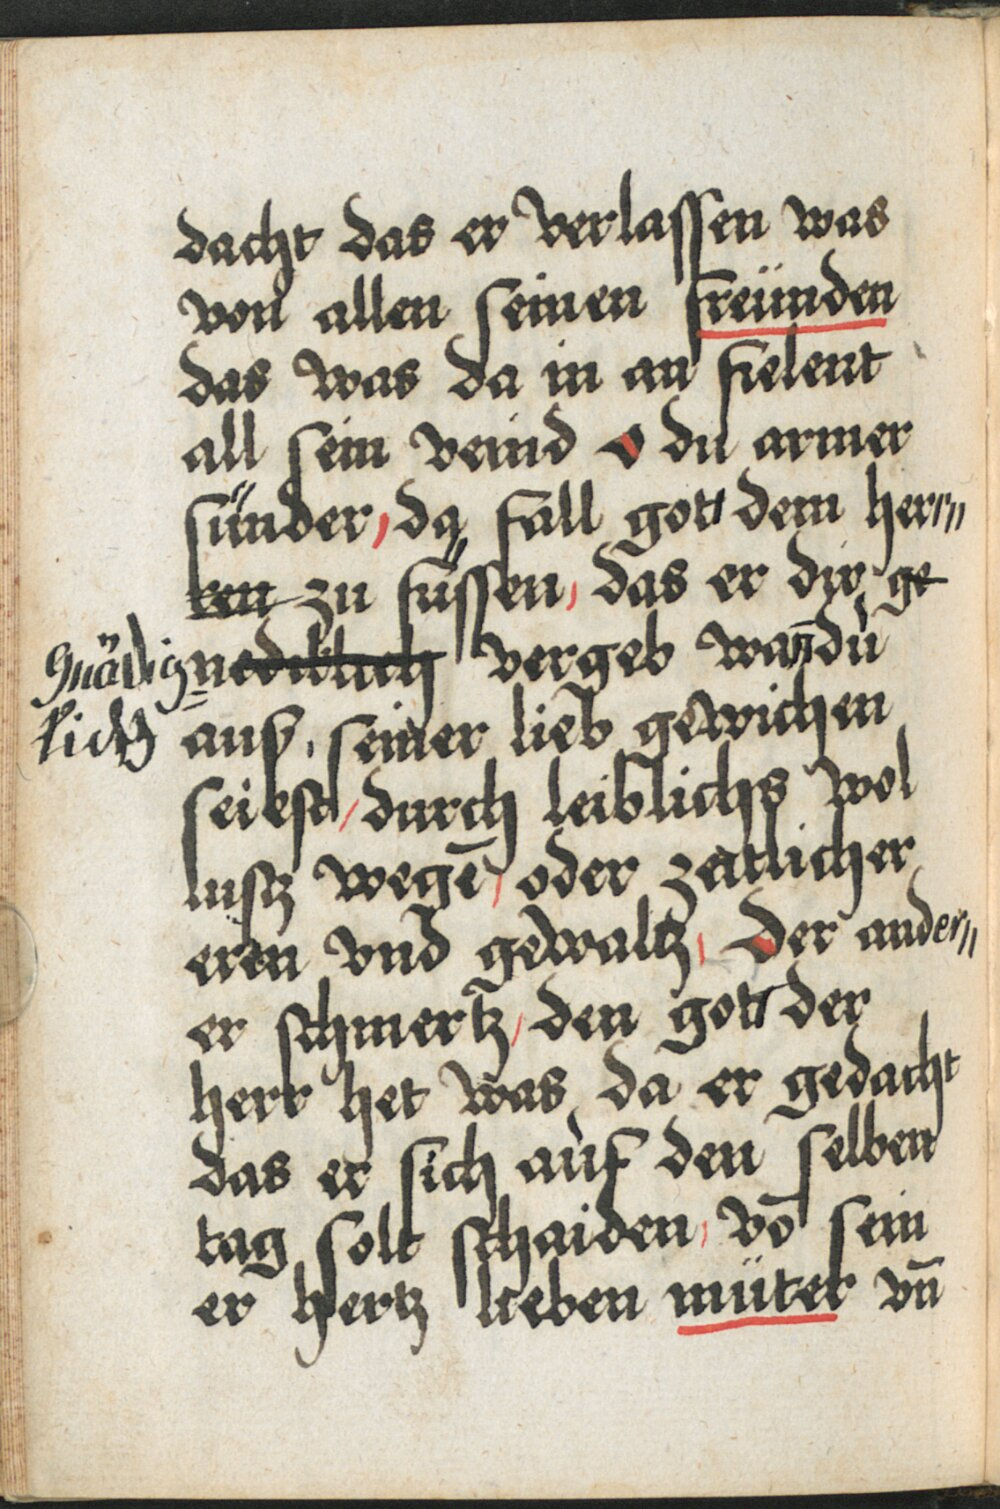 dacht das er verlassen was
von allen seinen freünden
das was da in an fielent
all sein veind O du armer
sünder, da fall gott dem her〃
ren zu füssen, das er dir ge
gnädig nediklich vergeb wan̄ du
lich auß seiner lieb gewichen
seiest / durch leiblichs wol
lustz wegē, oder zeitlicher
eren vnd gewaltz, Der ander〃
er schmertz, den gott der
herr het was da er gedacht
das er sich auf den selben
tag solt schaiden, vō sein
er hertz lieben müter vn̄